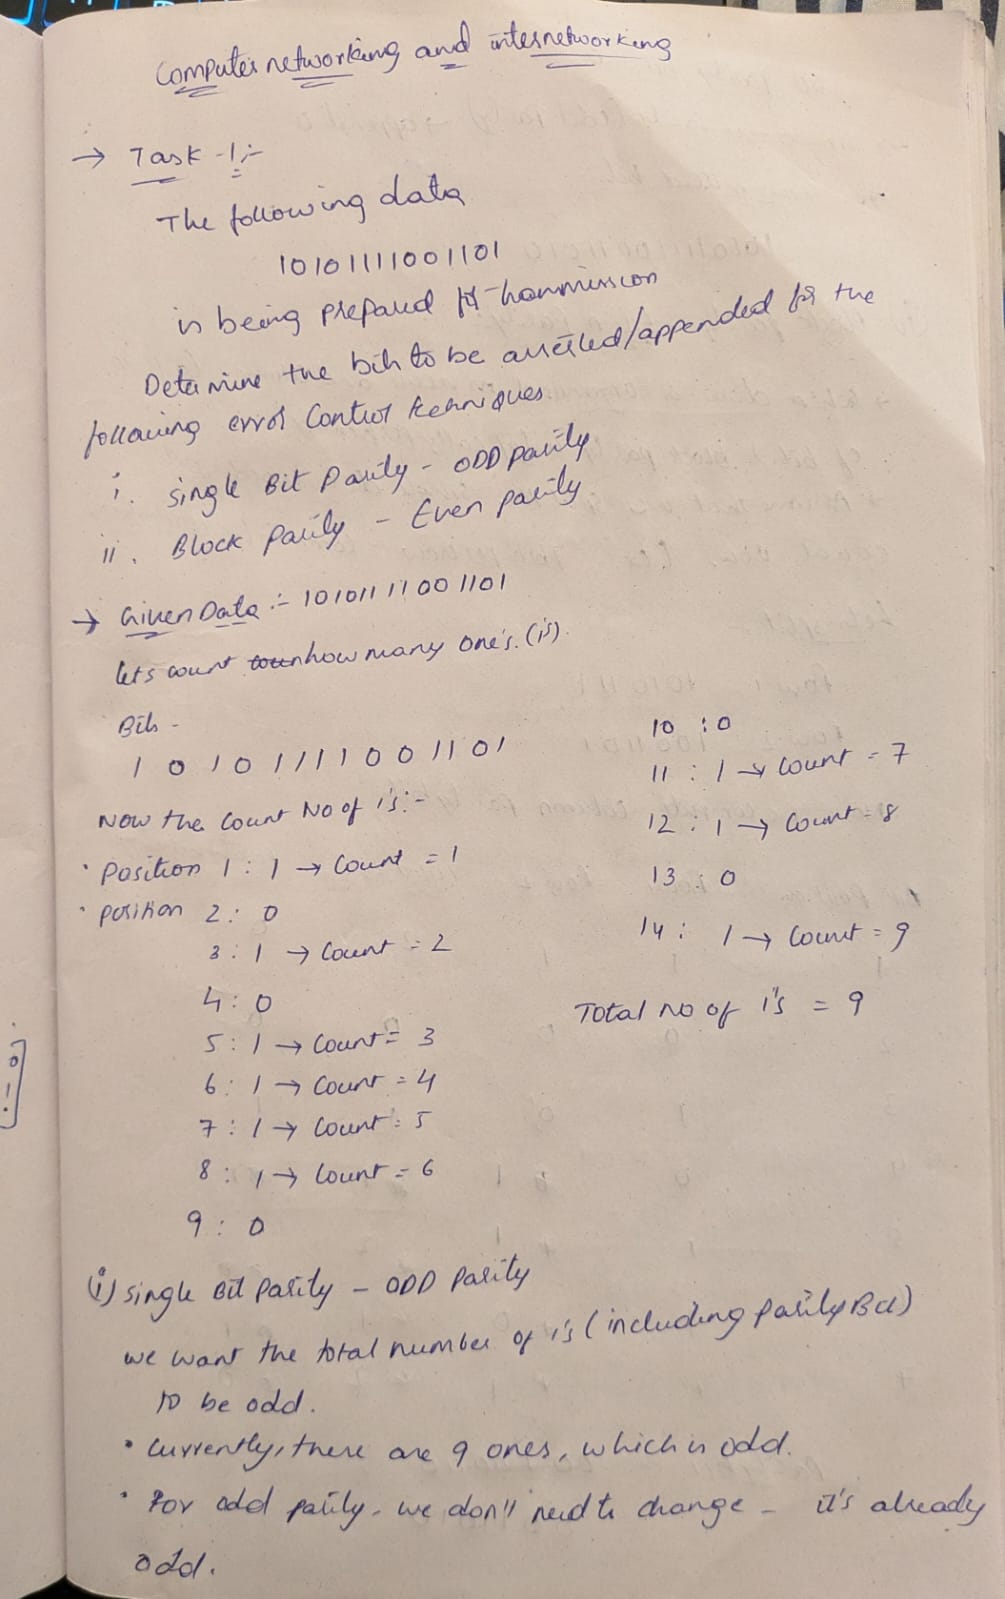 Computer networking and internetworking
→ Task -1:-
The following data
10101111001101
is being prepared for transmission
Determine the bits to be attached/appended for the
following error Control techniques
i. single Bit Parity - ODD parity
ii. Block Parity - Even parity
→ Given Data :- 10101111001101
lets count how many one's. (1's).
Bits -
1 0 1 0 1 1 1 1 0 0 1 1 0 1
Now the Count No of 1's:-
• Position 1 : 1 → Count = 1
• position 2 : 0
3 : 1 → Count = 2
4 : 0
5 : 1 → Count = 3
6 : 1 → Count = 4
7 : 1 → Count = 5
8 : 1 → Count = 6
9 : 0
10 : 0
11 : 1 → Count = 7
12 : 1 → Count = 8
13 : 0
14 : 1 → Count = 9
Total no of 1's = 9
(i) single Bit Parity - ODD Parity
we want the total number of 1's (including Parity Bit)
to be odd.
• Currently, there are 9 ones, which is odd.
• For odd parity, we don't need to change - it's already
odd.